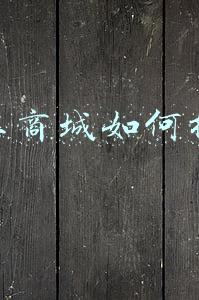 商城如何